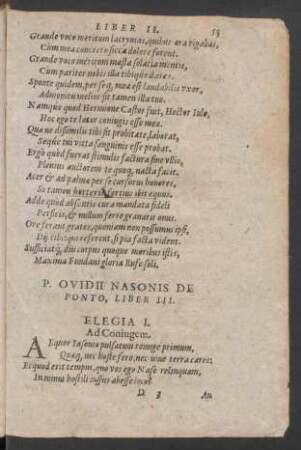 LIBER II.
53
Grande voco meritum lacrymas, quibus ora rigabas,
Cùm mea concreto sicca dolore forent.
Grande voco meritum mœsta solatia mentis,
Cùm pariter nobis illa tibique dares.
Sponte quidem, per seq́, mea est laudabilis vxor,
Admonitu melior fit tamen illa tuo.
Namque quod Hermionæ Castor fuit, Hector Iuli,
Hoc ego te lætor coniugis esse meæ.
Quæ ne dissimilis tibi sit probitate, laborat,
Seque tua vitta sanguinis esse probat.
Ergo quod fuerat stimulis factura sine vllis,
Plenius auctorem te quoq́, nacta facit.
Acer & ad palmæ per se cursurus honores,
Si tamen horteris, fortius ibit equus.
Adde quòd absentis cura mandata fideli
Perficis, & nullum ferre grauaris onus.
Ore ferant grates, quoniam non possumus ipsi,
Dij tibi: referent, si pia facta vident.
Sufficiatq́, diu corpus quoque moribus istis,
Maxima Fundani gloria Rufe soli.
P. OVIDII NASONIS DE
PONTO, LIBER III.
ELEGIA I.
Ad Coniugem.
AEquor Iasonio pulsatum remige primum,
Quæq́, nec hoste fero, nec niue terra cares:
Ecquod erit tempus, quo vos ego Naso relinquam,
In minus hostili iussus abesse loco?
D 3 An